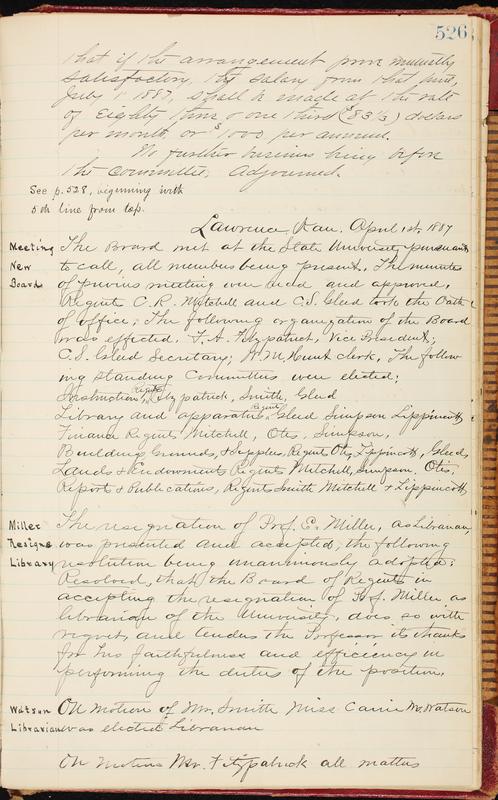 526
that if the arrangement prove mutually
satisfactory, the salary from that time,
July 1 1887, shall be made at the rate
of Eighty three & one third ($83 1/3) dollars
per month or $1000 per annum.
No further business being before
the committee, Adjourned.
See p. 528, beginning with
5th line from top.
Lawrence Kan. April 1st. 1887
Meeting The Board met at the State University pursuant
New to call, all members being present. The minutes
Board of previous meeting were read and approved,
Regents C.R. Mitchell and C.S. Gleed took the Oath
of office; The following organization of the Board
was effected. F.A. Fitzpatrick, Vice President;
C.S. Gleed Secretary; W.M. Hunt clerk, The follow
ing standing Committees were elected;
Instruction, Regents Fitzpatrick, Smith, Gleed
Library and apparatus, Regents Gleed Simpson Lippincott
Finance Regents Mitchell, Otis, Simpson,
Building Grounds, & Supplies, Regents Otis, Lippincott, Gleed,
Lands & Endowment Regents Mitchell, Simpson, Otis,
Report & Publications, Regents Smith Mitchell & Lippincott
Miller The resignation of Prof. E. Miller, as Librarian,
Resigns was presented and accepted, the following
Library resolution being unanimously adopted:
Resolved, that the Board of Regents in
accepting the resignation of Prof. Miller as
librarian of the University, does so with
regret, and tenders the Professor its thanks
for his faithfulness and efficiency in
performing the duties of the position.
Watson On motion of Mr. Smith Miss Carrie M. Watson
Librarian was elected Librarian
On motion Mr. Fitzpatrick all matters